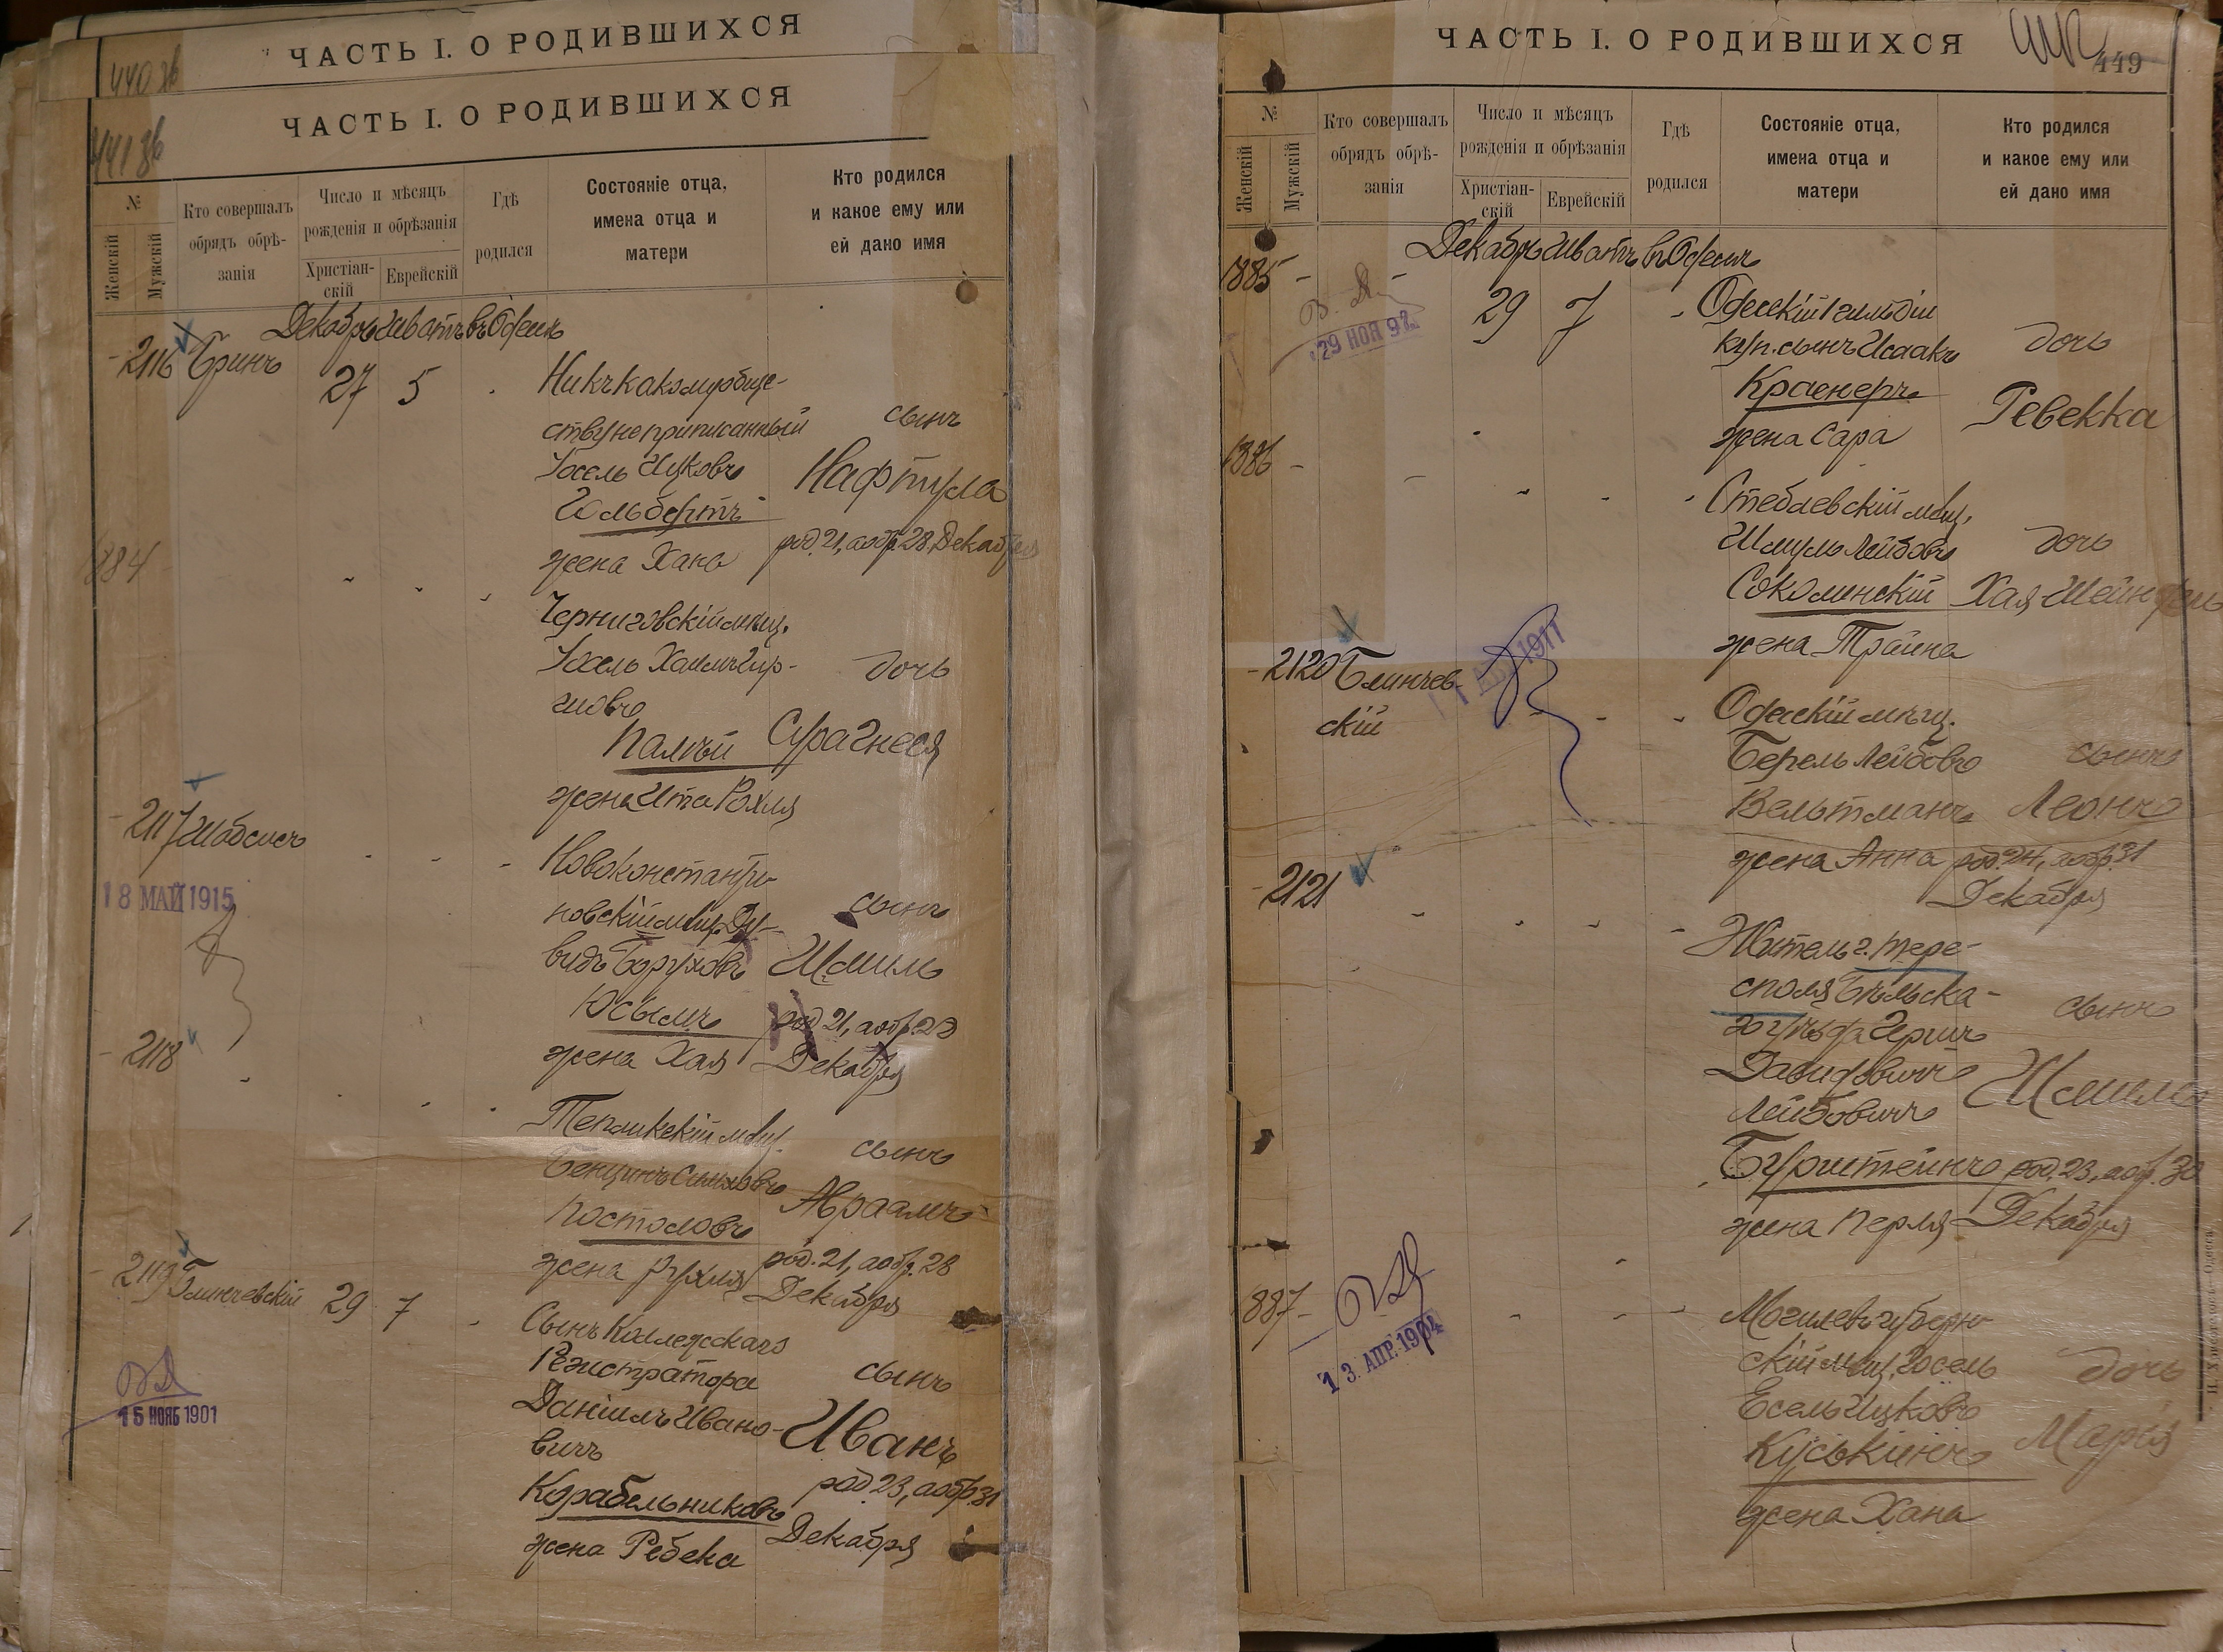 ЧАСТЬ I. О РОДИВШИХСЯ
ЧАСТЬ I. О РОДИВШИХСЯ
№
Женскій
Мужскій
Кто совершалъ
обрядъ обрѣ-
занія
Число и мѣсяцъ
рожденія и обрѣзанія
Христіан-
скій
Еврейскій
Гдѣ
родился
Состояніе отца,
имена отца и
матери
Кто родился
и какое ему или
ей дано имя
Декабрь Шватъ въ Одессѣ
2116 Бринъ 27 5
Никъ какому обще-
ству не приписанный
Іосель Ицковъ
Гольбертъ
жена Хана
сынъ
Нафтула
род. 21, а обр. 28 Декабря
884
Черниговскій мѣщ.
Іосель Хаимъ Гир-
шовъ
Палѣй
жена Ита Рохля
дочь
Сура Гнеся
2117 Шабсисъ
18 МАЙ 1915
Новоконстанти
новскій мѣщ. Ду-
видъ Боруховъ
Юсымъ
жена Хая
сынъ
Шмиль
род. 21, а обр. 28
Декабря
2118
Тепликскій мѣщ.
Бенционъ Симховъ
Постоловъ
жена Рухля
сынъ
Авраамъ
род. 21, а обр. 28
Декабря
2119 Блинчевскій 29 7
15 НОЯБ 1901
Сынъ Коллежскаго
Регистратора
Даніилъ Ивано-
вичъ
Корабельниковъ
жена Ребека
сынъ
Иванъ
род 23, а обр. 31
Декабря
ЧАСТЬ I. О РОДИВШИХСЯ
449
№
Женскій
Мужскій
Кто совершалъ
обрядъ обрѣ-
занія
Число и мѣсяцъ
рожденія и обрѣзанія
Христіан-
скій
Еврейскій
Гдѣ
родился
Состояніе отца,
имена отца и
матери
Кто родился
и какое ему или
ей дано имя
Декабрь Шватъ въ Одессѣ
1885 29 7
29 НОЯ 92
Одесскій 1 гильдіи
куп. сынъ Исаакъ
Краснеръ
жена Сара
дочь
Ревекка
1886
Стеблевскій мѣщ.
Шмуль Лейбовъ
Соколинскій
жена Трайна
дочь
Хая Шейндель
2120 Блинчев-
скій
1911
Одесскій мѣщ.
Берель Лейбовъ
Вельтманъ
жена Анна
сынъ
Леонъ
род. 24, а обр. 31
Декабря
2121
Житель г. Тере-
споля Бѣльска-
го уѣзда Герш
Давидовичъ
Лейбовичъ
Бурштейнъ
жена Перля
сынъ
Шмиль
род. 23, а обр. 30
Декабря
887
13. АПР. 1904
Могилев. губерн-
скій мѣщ. Іосель
Есель Ицковъ
Куськинъ
жена Хана
дочь
Марія